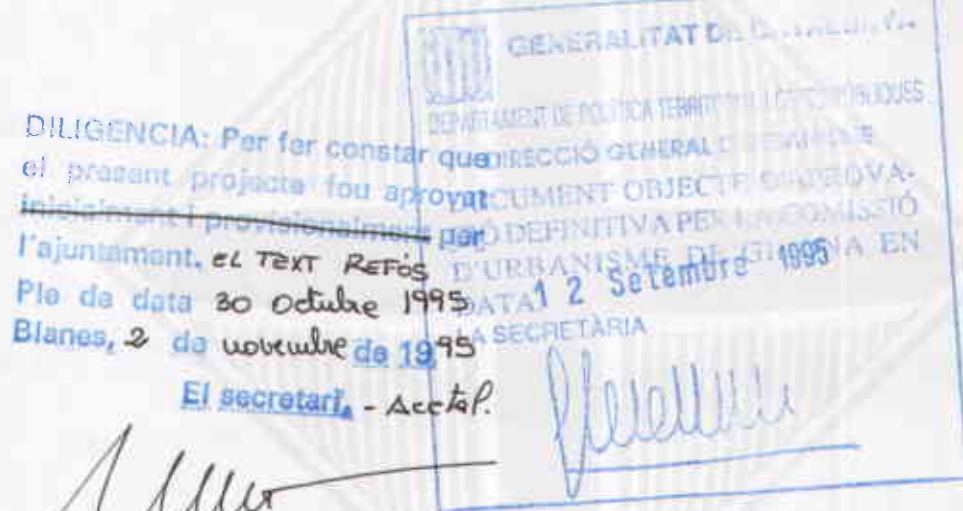 DILIGENCIA: Per fer constar que
el present projecte fou aprovat
inicialment i provisionalment per
l'ajuntament, EL TEXT REFÓS
Ple de data 30 Octubre 1995
Blanes, 2 de novembre de 1995
El secretari, - Acctal.
GENERALITAT DE CATALUNYA
DEPARTAMENT DE POLÍTICA TERRITORIAL I OBRES PÚBLIQUES
DIRECCIÓ GENERAL D'URBANISME
DOCUMENT OBJECTE D'APROVA-
CIÓ DEFINITIVA PER LA COMISSIÓ
D'URBANISME DE GIRONA EN
DATA 12 Setembre 1995
LA SECRETÀRIA